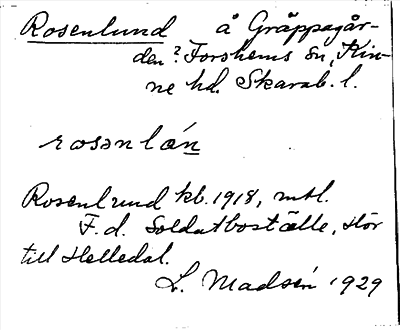 Rosenlund å Gräppagår-
den? Forshems sn, Kin-
ne hd. Skarab. l.
rosənlán
Rosenlund kb. 1918, mtl.
F. d. Soldatboställe, Hör
till Helledal.
L. Madsén 1929